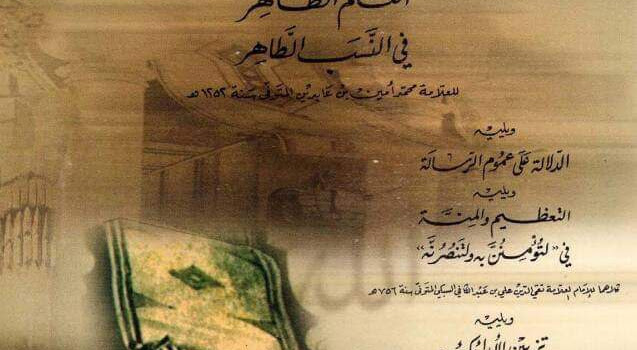 الظاهر
في النسب الطاهر
للعلامة محمد أمين بن عابدين المتوفى سنة ١٢٥٢هـ
ويليه
الدلالة على عموم الرسالة
ويليه
التعظيم والمنة
في "لتؤمنن به ولتنصرنه"
كلاهما للإمام العلامة تقي الدين علي بن عبد الكافي السبكي المتوفى سنة ٧٥٦هـ
ويليه